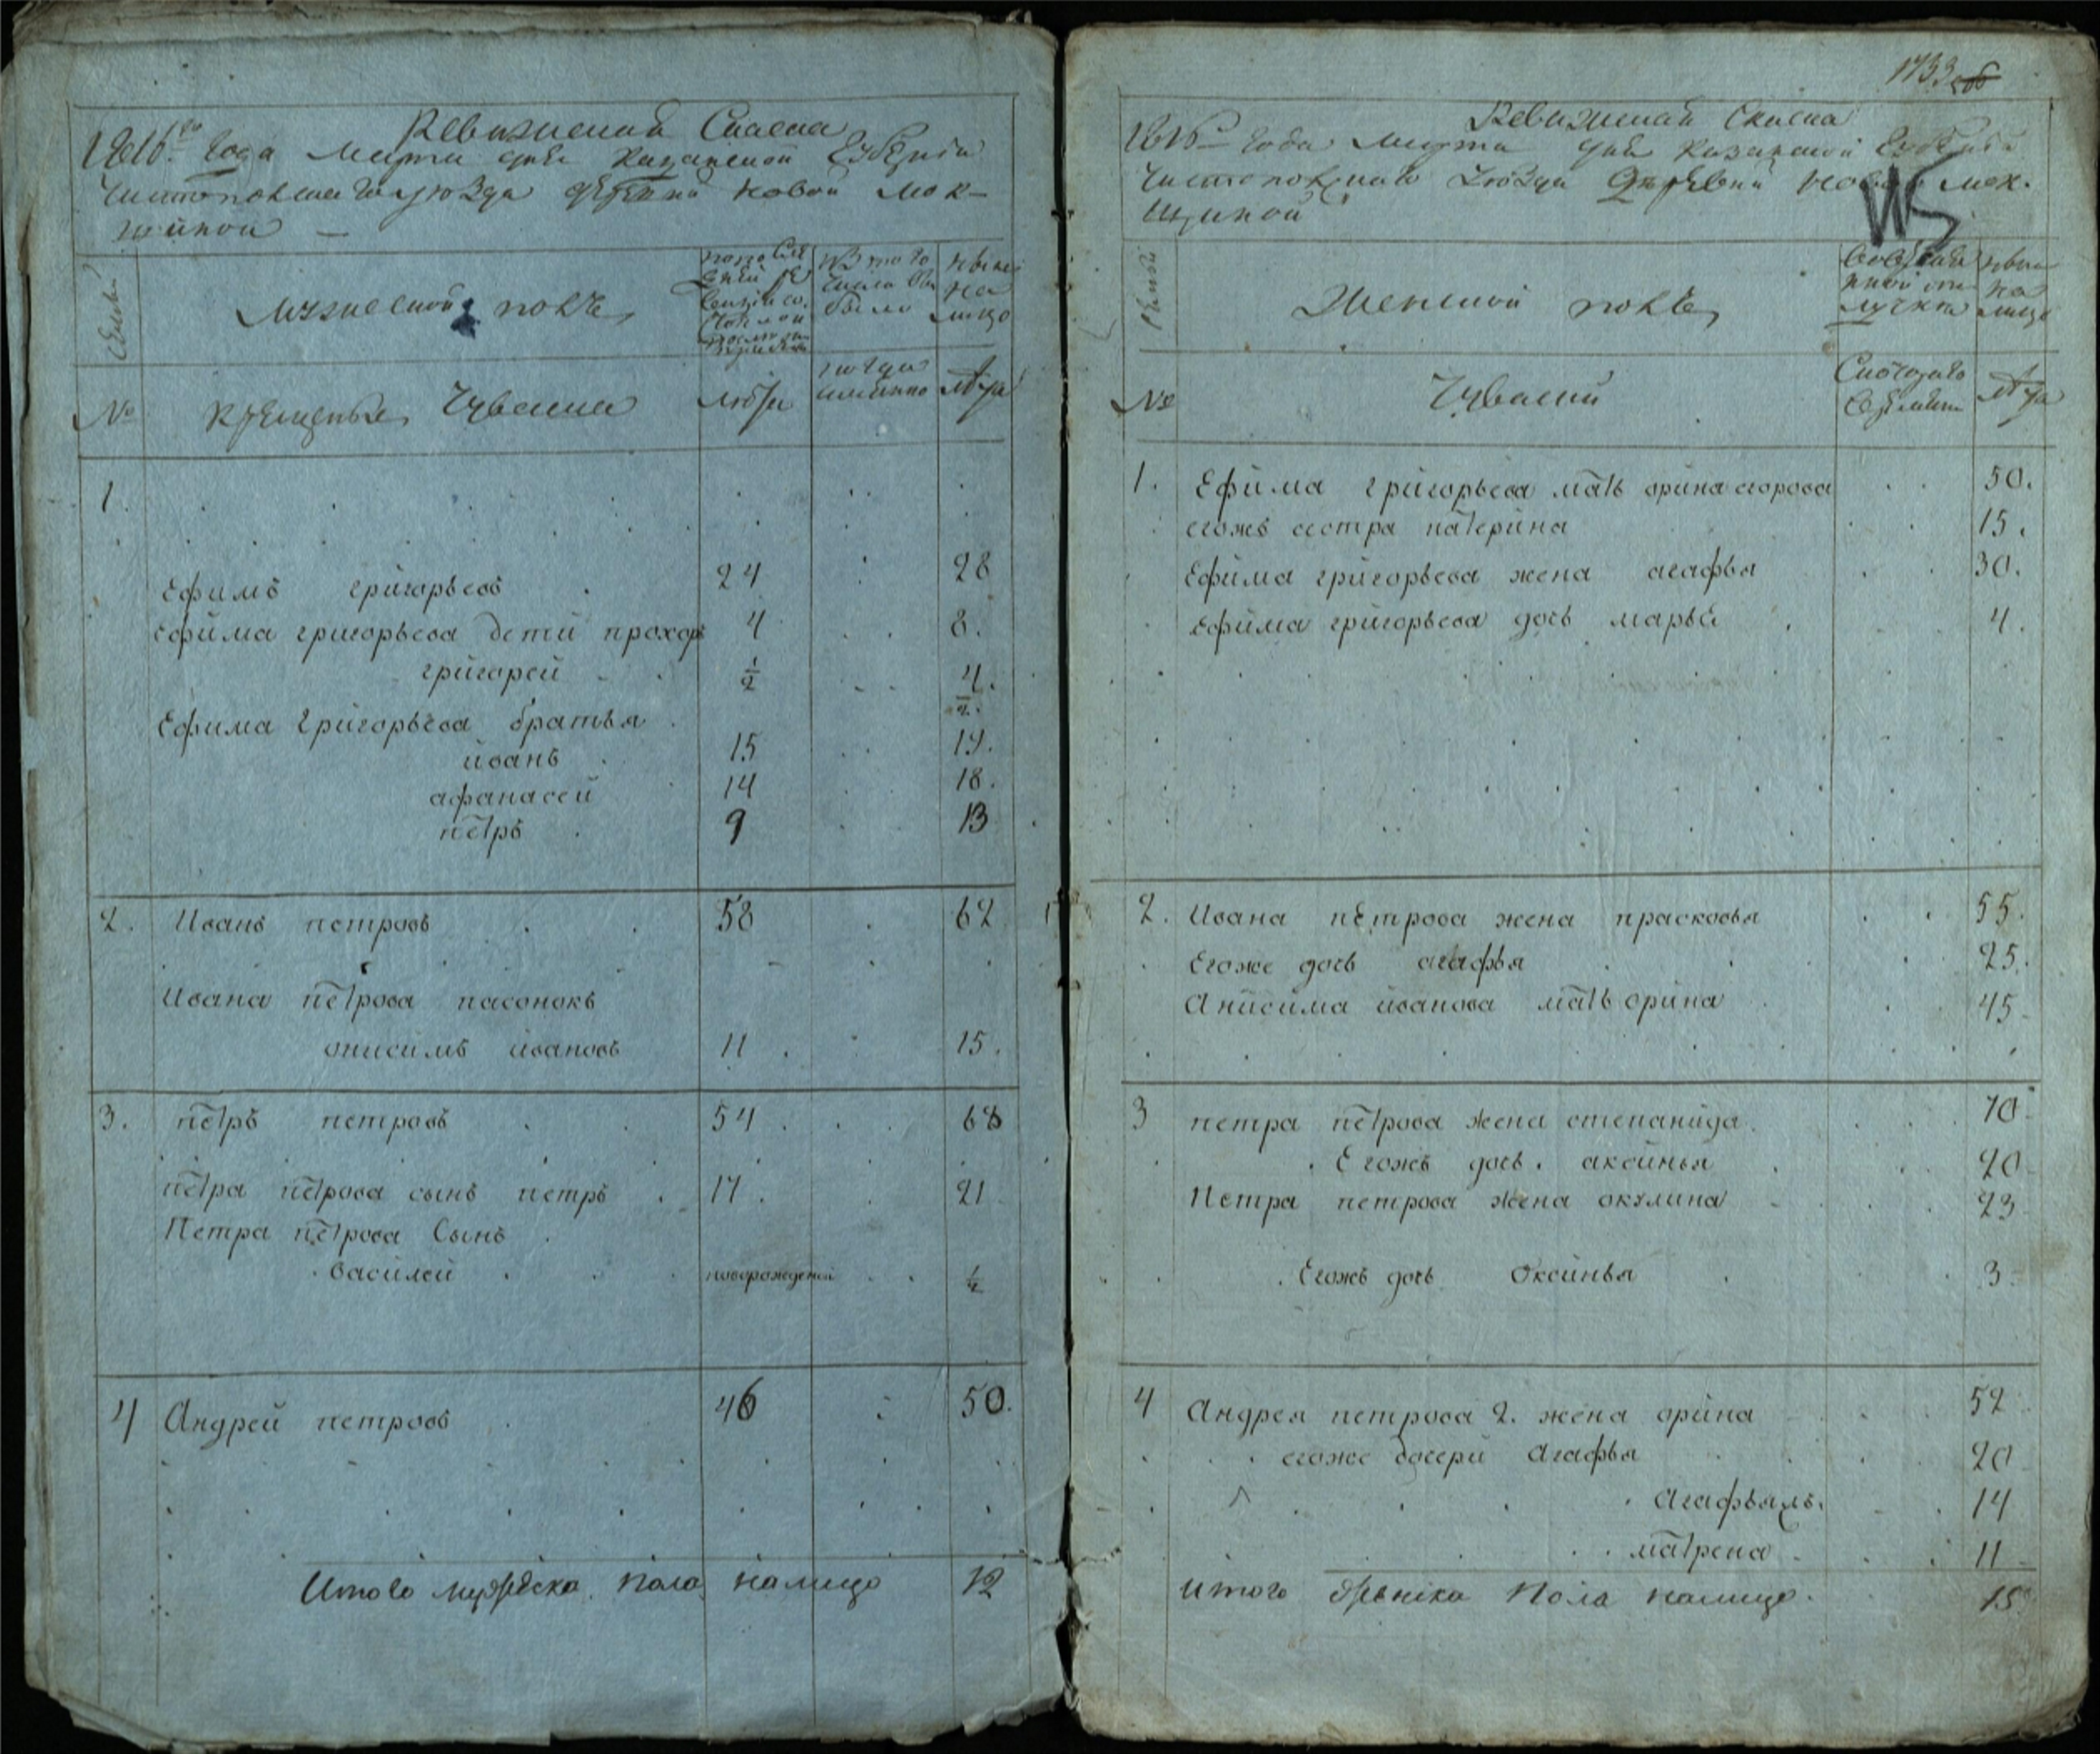 Ревизская Сказка
1816.го Года Марта дня Казанской Губернiи
Чистопольскаго уѣзда деревни Новой Мок-
шиной
Семьи
Мужеской полъ
По последней ревизiи состояло и после прибыло
Из того числа выбыло
Ныне на лицо
№
крещеные Чуваша
лѣта
когда именно
лѣта
1.
Ефимъ григорьевъ 24 28
Ефима григорьева дети прохоръ 4 8.
григорей ½ 4. ½.
Ефима Григорьева братья
иванъ 15 19.
афанасей 14 18.
петръ 9 13
2. Иванъ петровъ 58 62
Ивана петрова пасонокъ
онисимъ ивановъ 11 15.
3. петръ петровъ 54 68
петра петрова сынъ петръ 17. 21
Петра петрова Сынъ
Василей новорожденой ½
4 Андрей петровъ 46 50.
Итого мужеска пола налицо 12
1733 об
Ревизская Сказка
1816го Года Марта дня Казанской Губернiи
Чистопольскаго Уѣзда Деревни Новой Мок-
шиной
Семьи
Женской полъ
Во временной отлучке
Ныне на лицо
№
Чуваши
Съ котораго времени
лѣта
1. Ефима григорьева мать орина егорова 50.
егожъ сестра катерина 15.
Ефима григорьева жена агафья 30.
Ефима григорьева дочь марья 4.
2. Ивана петрова жена прасковья 55.
Егоже дочь агафья 25.
Анисима иванова мать орина 45
3 петра петрова жена степанида 70
Егожъ дочь аксинья 20
Петра петрова жена окулина 23
Егожъ дочь Оксинья 3
4 Андрея петрова 2. жена орина 52
егоже дочери Агафья 20
Агафьяжъ. 14
матрена 11
итого женска Пола налицо. 15